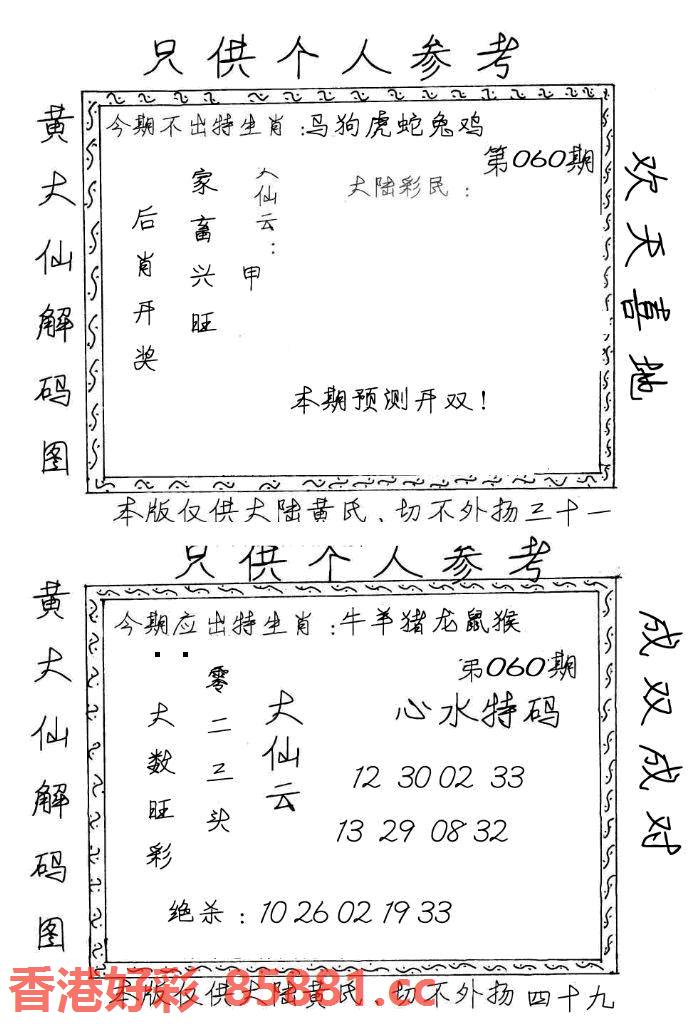 只供个人参考
黄大仙解码图
今期不出特生肖：马狗虎蛇兔鸡
第060期
大仙云：
大陆彩民：
甲
家畜兴旺
后肖开奖
本期预测开双！
欢天喜地
本版仅供大陆黄氏、切不外扬三十一
只供个人参考
黄大仙解码图
今期应出特生肖：牛羊猪龙鼠猴
第060期
大仙云
零二三头
大数旺彩
心水特码
12 30 02 33
13 29 08 32
绝杀：10 26 02 19 33
成双成对
本版仅供大陆黄氏、切不外扬四十九
香港好彩 85881.cc